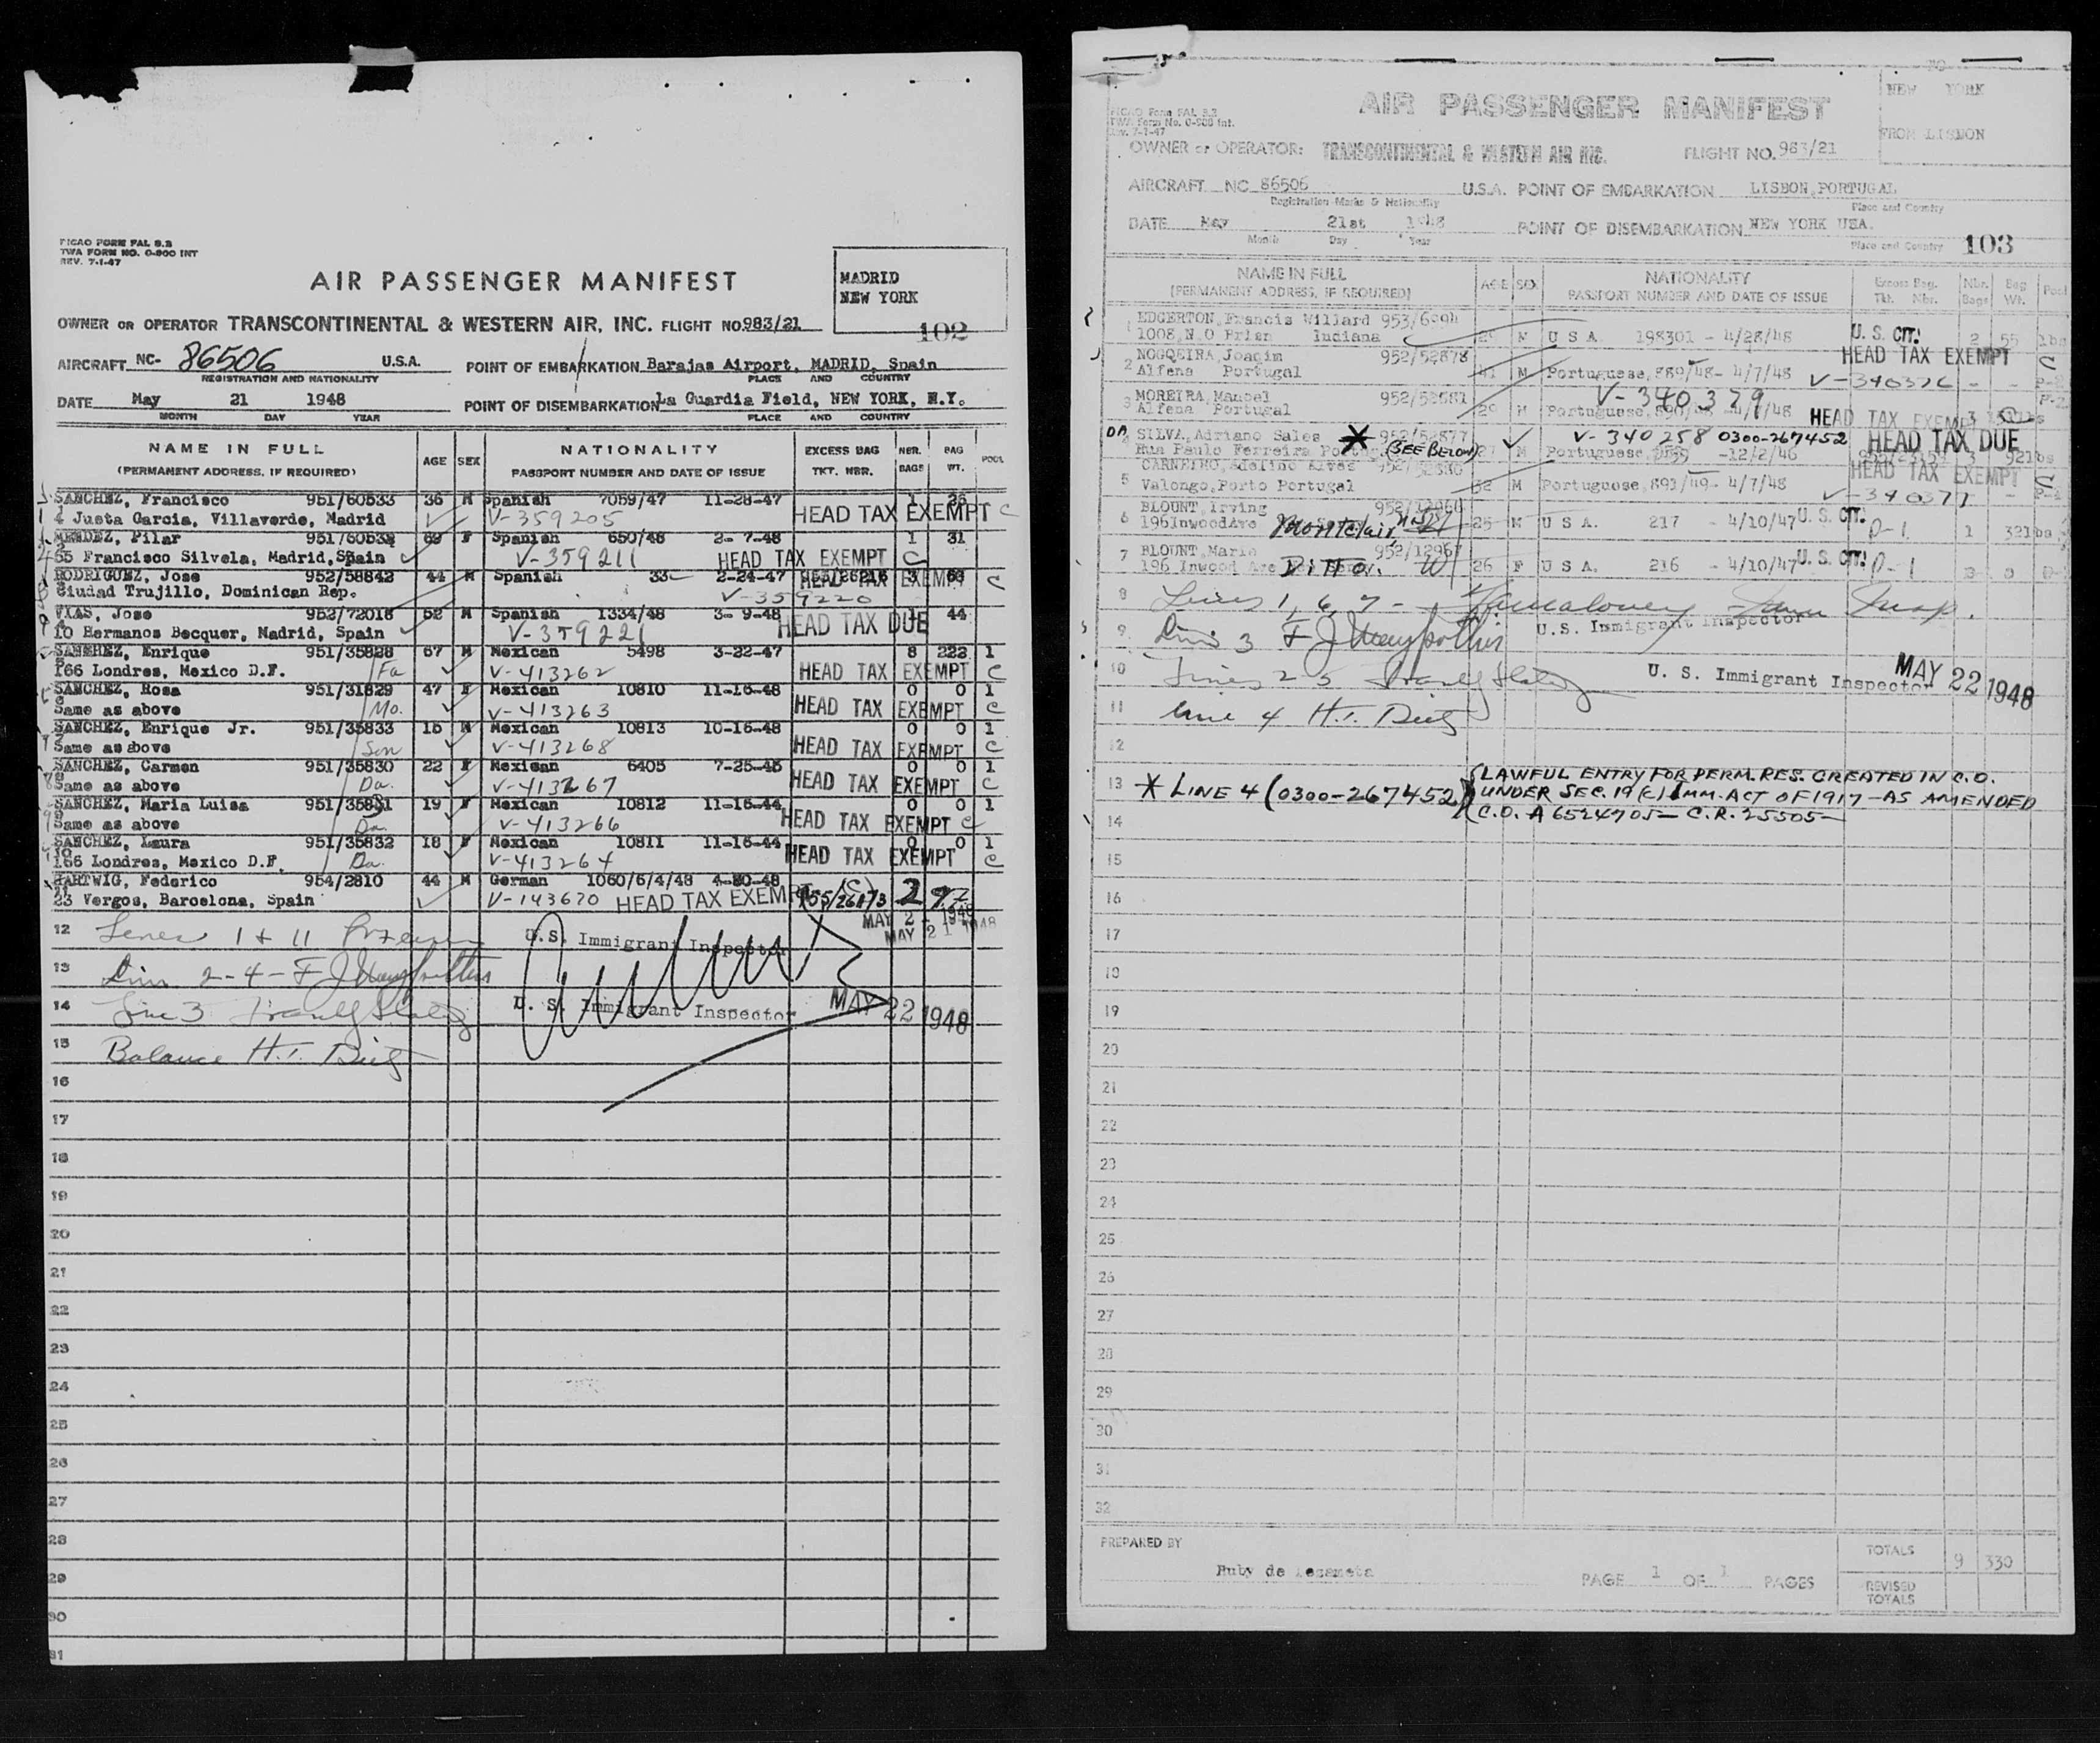 PICAO FORM FAL 8.2
TWA FORM NO. O-900 INT
REV. 7-1-47
AIR PASSENGER MANIFEST
MADRID
NEW YORK
102
OWNER OR OPERATOR TRANSCONTINENTAL & WESTERN AIR, INC. FLIGHT NO. 983/21
AIRCRAFT NC- 86506 U.S.A. POINT OF EMBARKATION Barajas Airport, MADRID, Spain
REGISTRATION AND NATIONALITY PLACE AND COUNTRY
DATE May 21 1948 POINT OF DISEMBARKATION La Guardia Field, NEW YORK, N.Y.
MONTH DAY YEAR PLACE AND COUNTRY
NAME IN FULL AGE SEX NATIONALITY EXCESS BAG NBR. BAG POOL
(PERMANENT ADDRESS, IF REQUIRED) PASSPORT NUMBER AND DATE OF ISSUE TKT. NBR. BAGS WT.
SANCHEZ, Francisco 951/60533 36 M Spanish 7059/47 11-28-47 1 26
4 Justa Garcia, Villaverde, Madrid V-359205 HEAD TAX EXEMPT C
MENDEZ, Pilar 69 F Spanish 650/48 2- 7-48 1 31
55 Francisco Silvela, Madrid, Spain V-359211 HEAD TAX EXEMPT C
RODRIGUEZ, Jose 952/58842 44 M Spanish 33 2-24-47 HEAD TAX EXEMPT C
Ciudad Trujillo, Dominican Rep. V-359220
VIAS, Jose 952/72018 52 M Spanish 1334/48 3- 9-48 44
10 Hermanos Becquer, Madrid, Spain V-359221 HEAD TAX DUE
SANCHEZ, Enrique 951/35828 67 M Mexican 5498 3-22-47 8 222 1
166 Londres, Mexico D.F. Fa V-413262 HEAD TAX EXEMPT C
SANCHEZ, Rosa 951/31829 47 F Mexican 10810 11-16-48 0 0 1
Same as above Mo. V-413263 HEAD TAX EXEMPT C
SANCHEZ, Enrique Jr. 951/35833 15 M Mexican 10813 10-16-48 0 0 1
Same as above Son V-413268 HEAD TAX EXEMPT C
SANCHEZ, Carmen 951/35830 22 F Mexican 6405 7-25-45 0 0 1
Same as above Da. V-413267 HEAD TAX EXEMPT C
SANCHEZ, Maria Luisa 951/35831 19 F Mexican 10812 11-16-44 0 0 1
Same as above Da V-413266 HEAD TAX EXEMPT C
SANCHEZ, Laura 951/35832 18 F Mexican 10811 11-16-44 0 0 1
166 Londres, Mexico D.F. Da. V-413264 HEAD TAX EXEMPT C
HARTWIG, Federico 954/2810 44 M German 1060/6/4/48 4-20-48
23 Vergos, Barcelona, Spain V-143670 HEAD TAX EXEMPT 2
12 Lines 1 & 11 U.S. Immigrant Inspector MAY 21 1948
13 Lines 2-4-
14 Line 3 U. S. Immigrant Inspector MAY 22 1948
15 Balance H.T.
16
17
18
19
20
21
22
23
24
25
26
27
28
29
30
31
PICAO Form FAL 8.2
TWA Form No. O-900 Int.
Rev. 7-1-47
AIR PASSENGER MANIFEST
NEW YORK
FROM LISBON
OWNER or OPERATOR: TRANSCONTINENTAL & WESTERN AIR INC. FLIGHT NO. 983/21
AIRCRAFT NC 86506 U.S.A. POINT OF EMBARKATION LISBON, PORTUGAL
Registration Marks & Nationality Place and Country
DATE May 21st 1948 POINT OF DISEMBARKATION NEW YORK USA.
Month Day Year Place and Country 103
NAME IN FULL AGE SEX NATIONALITY Excess Bag. Nbr. Bag Pool
(PERMANENT ADDRESS, IF REQUIRED) PASSPORT NUMBER AND DATE OF ISSUE Tkt. Nbr. Bags Wt.
1 EDGERTON, Francis Willard 953/6994
1008, N.O Brien Indiana M U S A 198301 - 4/28/48 U. S. CIT. 2 55 lbs
HEAD TAX EXEMPT C
2 NOGQEIRA, Joaqim 952/52878
Alfena Portugal 41 M Portuguese, 889/48- 4/7/48 V-340376
3 MOREIRA, Manoel V-340379
Alfena Portugal 29 M Portuguese, HEAD TAX EXEMPT
4 SILVA, Adriano Sales * 952/52877 V-340258 0300-267452 HEAD TAX DUE
Rua Paulo Ferreira (SEE BELOW) M Portuguese, -12/2/46
HEAD TAX EXEMPT
5 CARNEIRO, Adelino Alves
Valongo, Porto Portugal 52 M Portuguese, 891/48- 4/7/48 V-340377
6 BLOUNT, Irving 952/12966
196 Inwood Ave Montclair, N.J. 25 M U S A. 217 4/10/47 U. S. CIT. P-1 1 32lbs
7 BLOUNT, Marie 952/12967
196 Inwood Ave Ditto. 26 F U S A. 216 - 4/10/47 U. S. CIT. P-1
8 Lines 1, 6, 7 -
9 Line 3 U.S. Immigrant Inspector
10 Lines 2 5 U. S. Immigrant Inspector MAY 22 1948
11 Line 4 H.T.
12
13 * LINE 4 (0300-267452) LAWFUL ENTRY FOR PERM. RES. CREATED IN C.O.
UNDER SEC. 19(c) IMM. ACT OF 1917 - AS AMENDED
14 C.O. A6524705 - C.R. 25505-
15
16
17
18
19
20
21
22
23
24
25
26
27
28
29
30
31
32
PREPARED BY TOTALS 9 330
Ruby de PAGE 1 OF 1 PAGES
REVISED
TOTALS